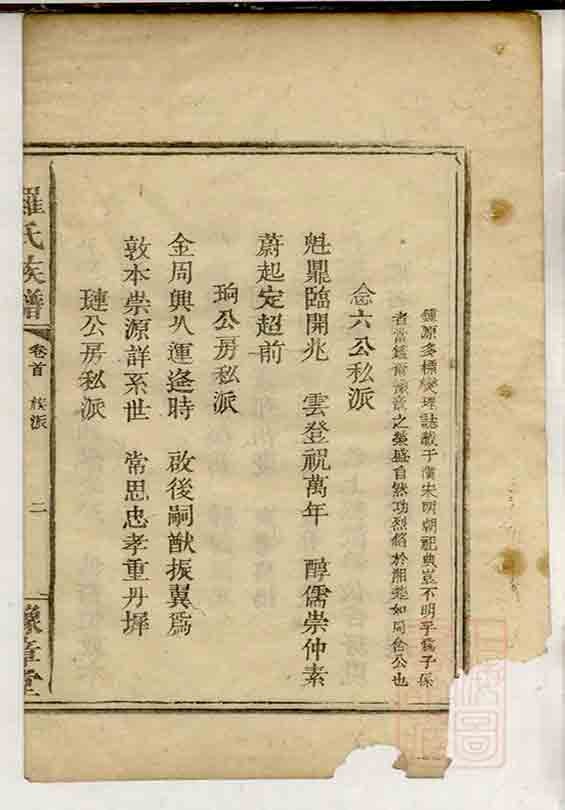 鍾原多標燮理誌載于漢宋明朝祀典豈不明乎僑子孫
者當鑑爾豫章之榮盛自然功烈
於湘楚如周合公也
念六公私派
魁鼎臨開兆 雲登祝萬年 醇儒崇仲素
蔚起定超前
珦公房私派
金周興以運逢時 啟後嗣猷振翼為
敦本崇源詳系世 常思忠孝重丹墀
璉公房私派
羅氏族譜
卷首 族派
二
豫章堂